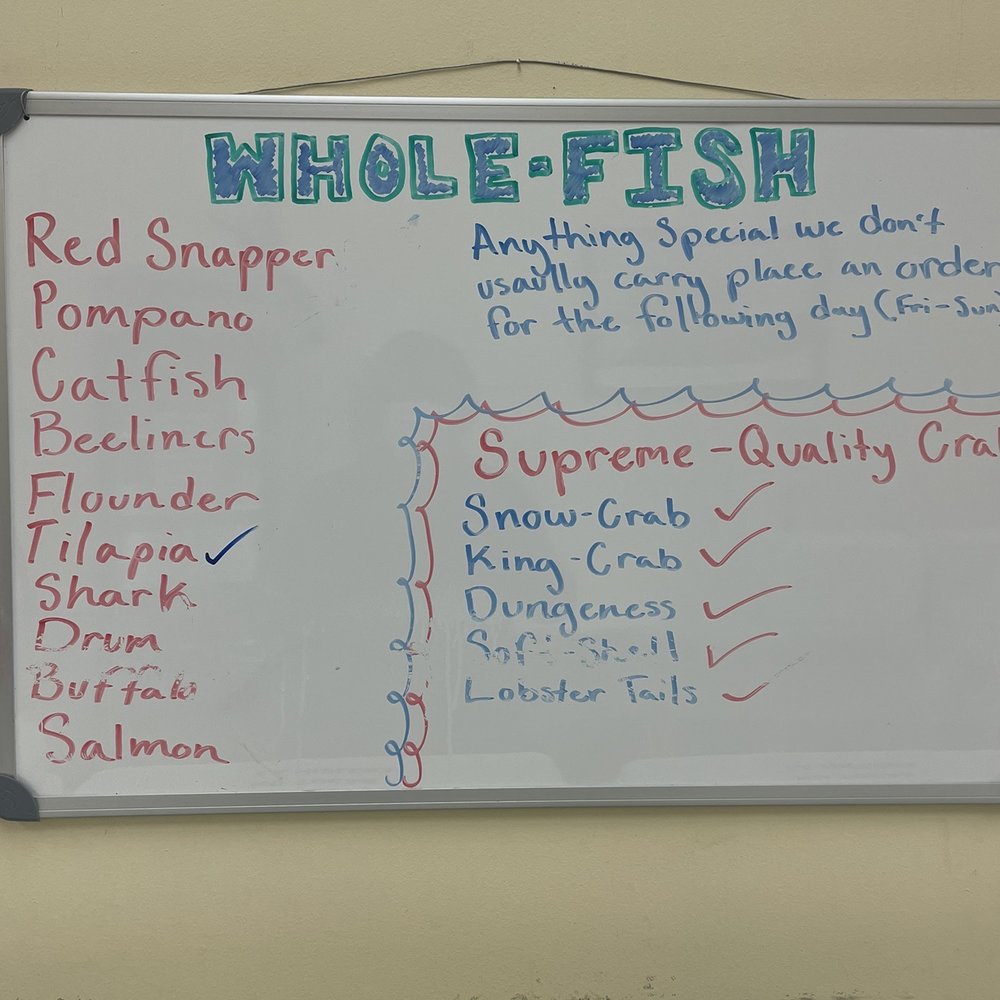 WHOLE-FISH
Red Snapper
Pompano
Catfish
Beeliners
Flounder
Tilapia ✓
Shark
Drum
Buffalo
Salmon
Anything Special we don't
usaully carry place an order
for the following day (Fri-Sun)
Supreme-Quality Cra
Snow-Crab ✓
King-Crab ✓
Dungeness ✓
Soft-Shell ✓
Lobster Tails ✓